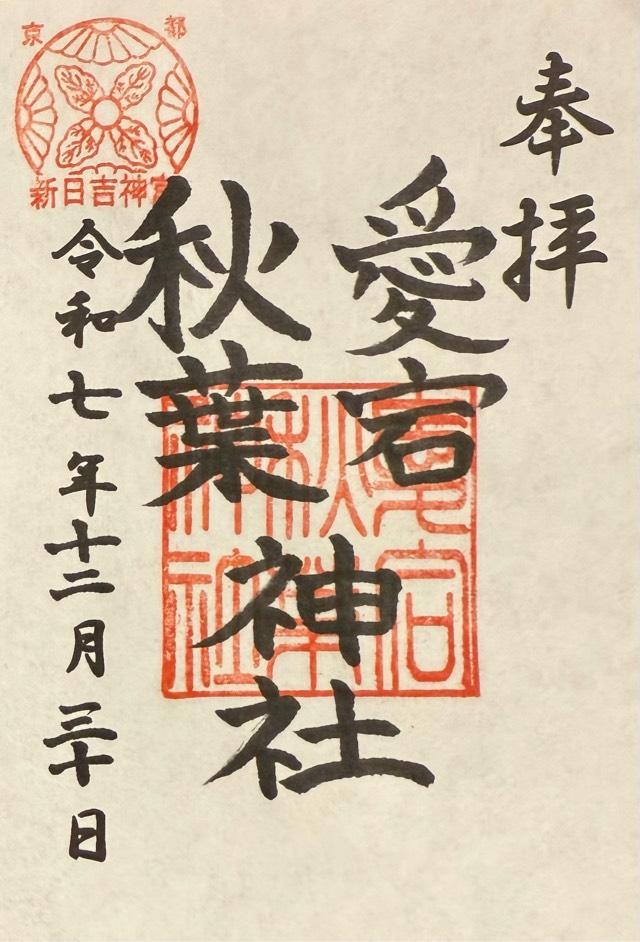 奉拝
愛宕
秋葉
神社
令和七年十二月三十日
京都
新日吉神宮
愛宕
秋葉
神社